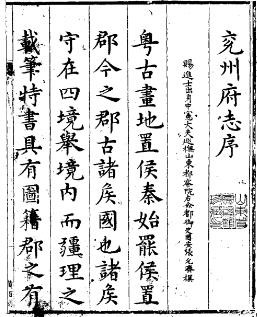 兖州府志序
賜進士出身中憲大夫巡撫山東都察院右僉都御史周安張允濟撰
粤古畫地置侯秦始罷侯置
郡今之郡古諸矦國也諸矦
守在四境舉境内而疆理之
載筆特書具有圖籍郡家有